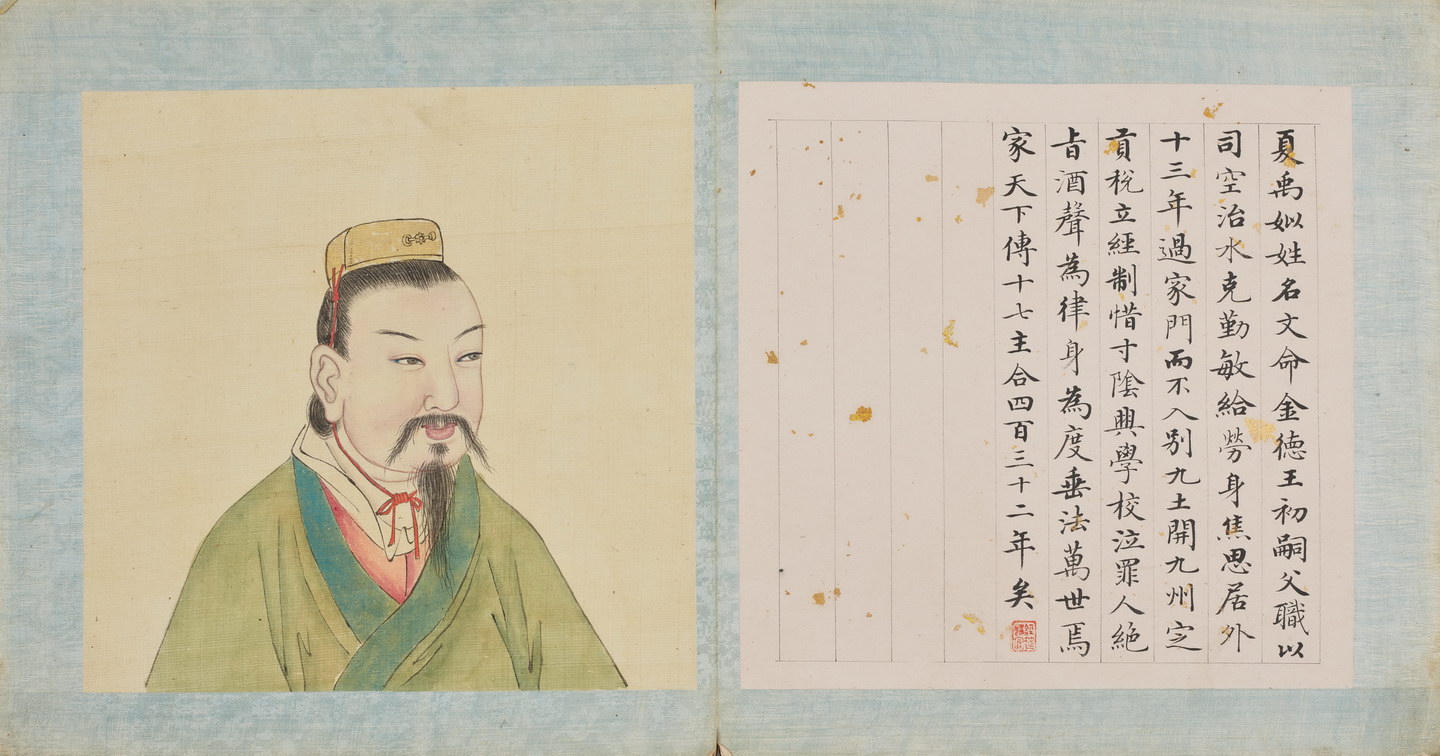 夏禹姒姓名文命金德王初嗣父職以
司空治水克勤敏給勞身焦思居外
十三年過家門而不入別九土開九州定
貢稅立經制惜寸陰興學校泣罪人絶
旨酒聲為律身為度垂法萬世焉
家天下傳十七主合四百三十二年矣